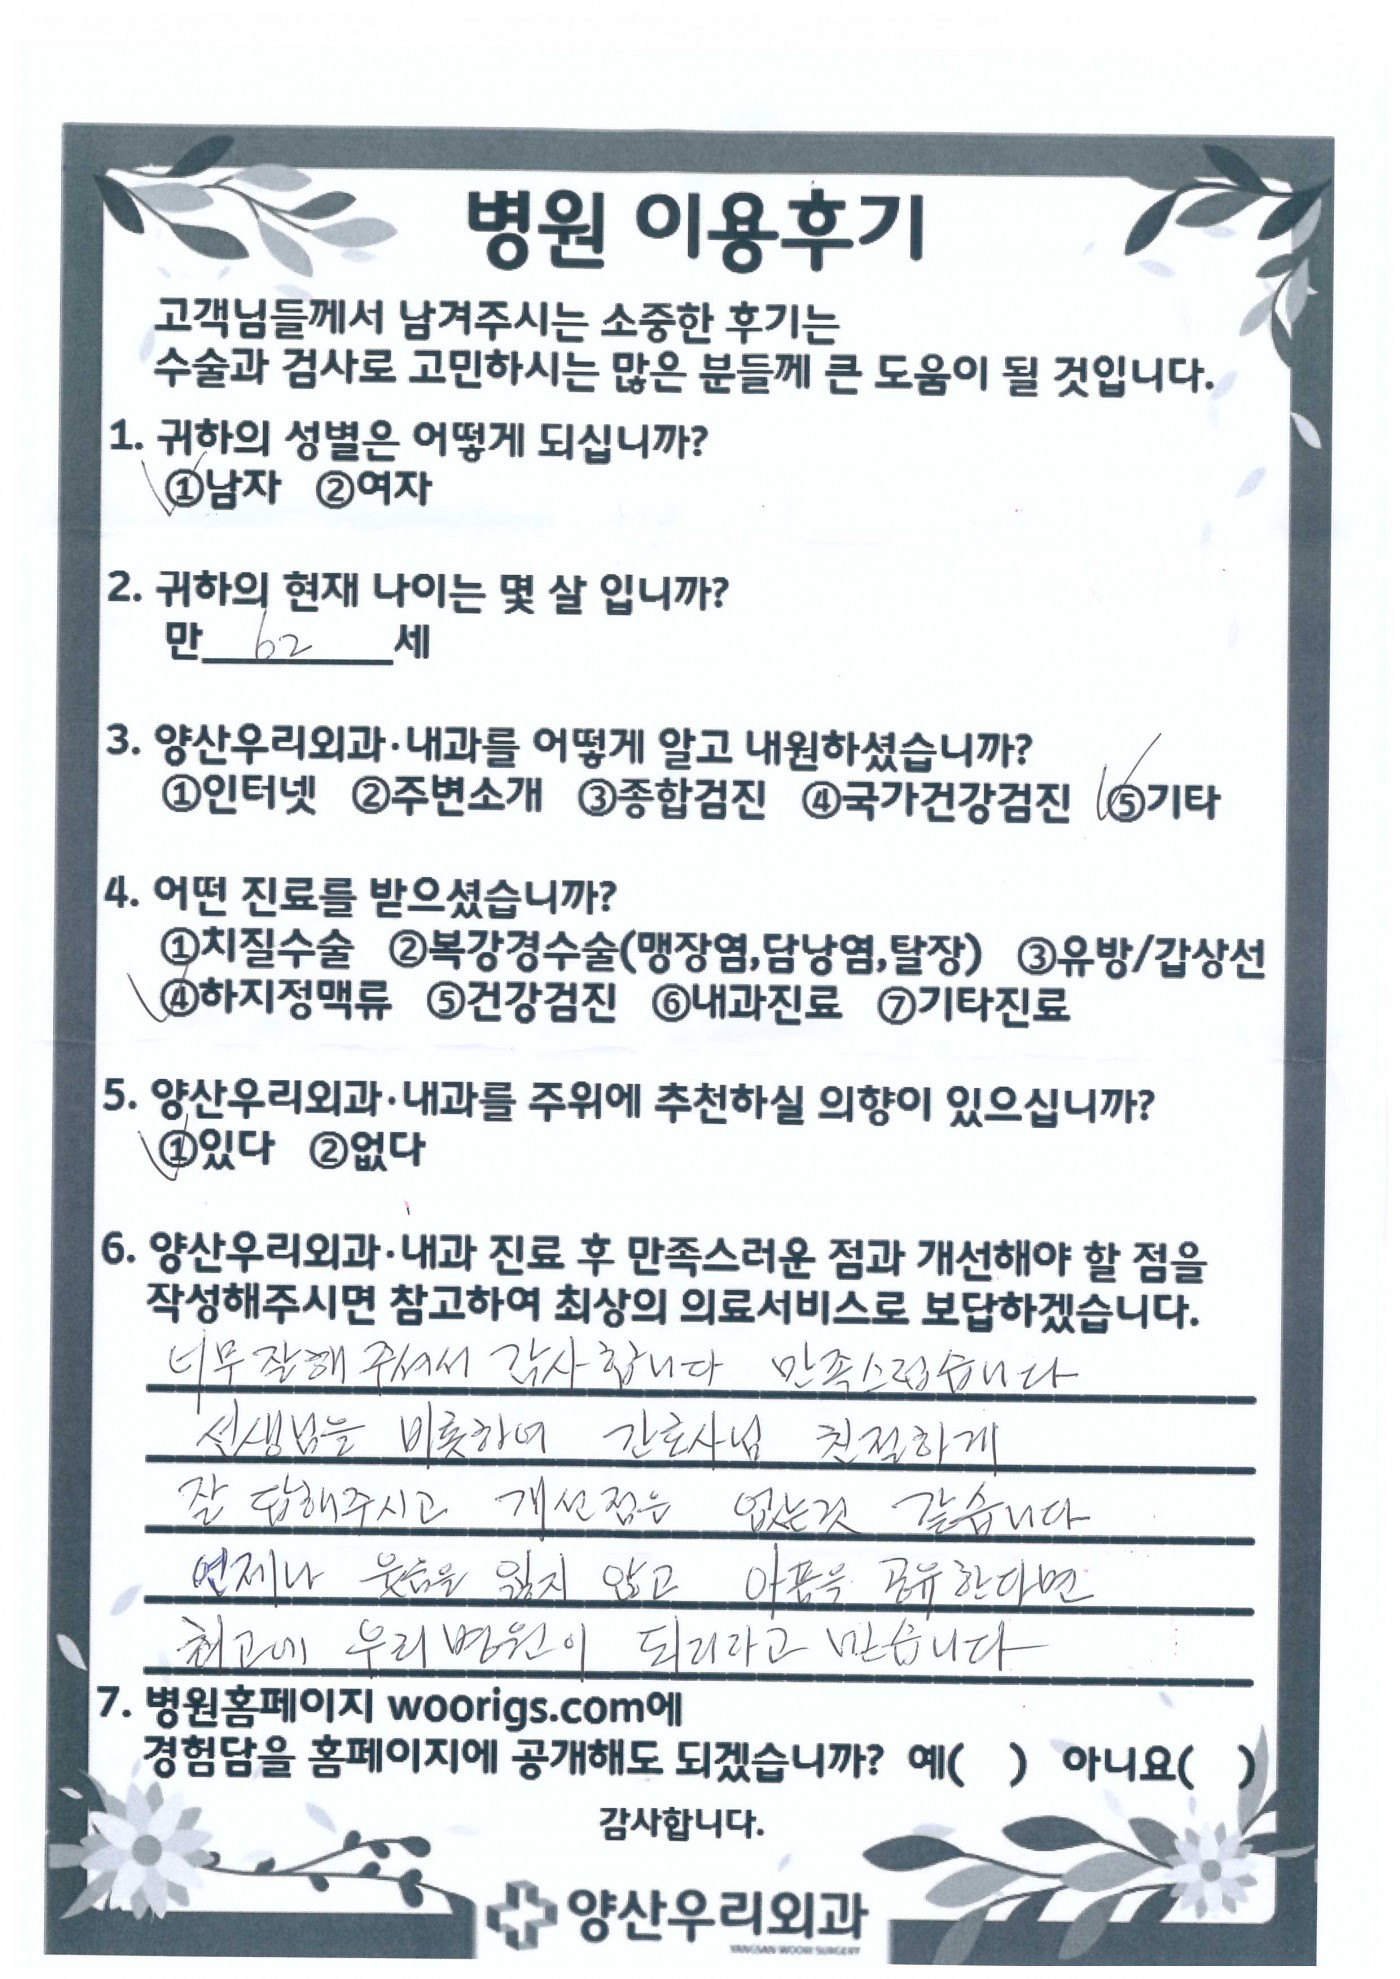 병원 이용후기
고객님들께서 남겨주시는 소중한 후기는
수술과 검사로 고민하시는 많은 분들께 큰 도움이 될 것입니다.
1. 귀하의 성별은 어떻게 되십니까?
①남자 ②여자
2. 귀하의 현재 나이는 몇 살 입니까?
만 62 세
3. 양산우리외과·내과를 어떻게 알고 내원하셨습니까?
①인터넷 ②주변소개 ③종합검진 ④국가건강검진 ⑤기타
4. 어떤 진료를 받으셨습니까?
①치질수술 ②복강경수술(맹장염,담낭염,탈장) ③유방/갑상선
④하지정맥류 ⑤건강검진 ⑥내과진료 ⑦기타진료
5. 양산우리외과·내과를 주위에 추천하실 의향이 있으십니까?
①있다 ②없다
6. 양산우리외과·내과 진료 후 만족스러운 점과 개선해야 할 점을
작성해주시면 참고하여 최상의 의료서비스로 보답하겠습니다.
너무 잘해 주셔서 감사합니다 만족스럽습니다
선생님을 비롯하여 간호사님 친절하게
잘 답해주시고 개선점은 없는것 같습니다
언제나 웃음을 잃지 않고 아픔을 공유한다면
최고에 우리병원이 되리라고 믿습니다
7. 병원홈페이지 woorigs.com에
경험담을 홈페이지에 공개해도 되겠습니까? 예( ) 아니요( )
감사합니다.
양산우리외과
YANGSAN WOORI SURGERY